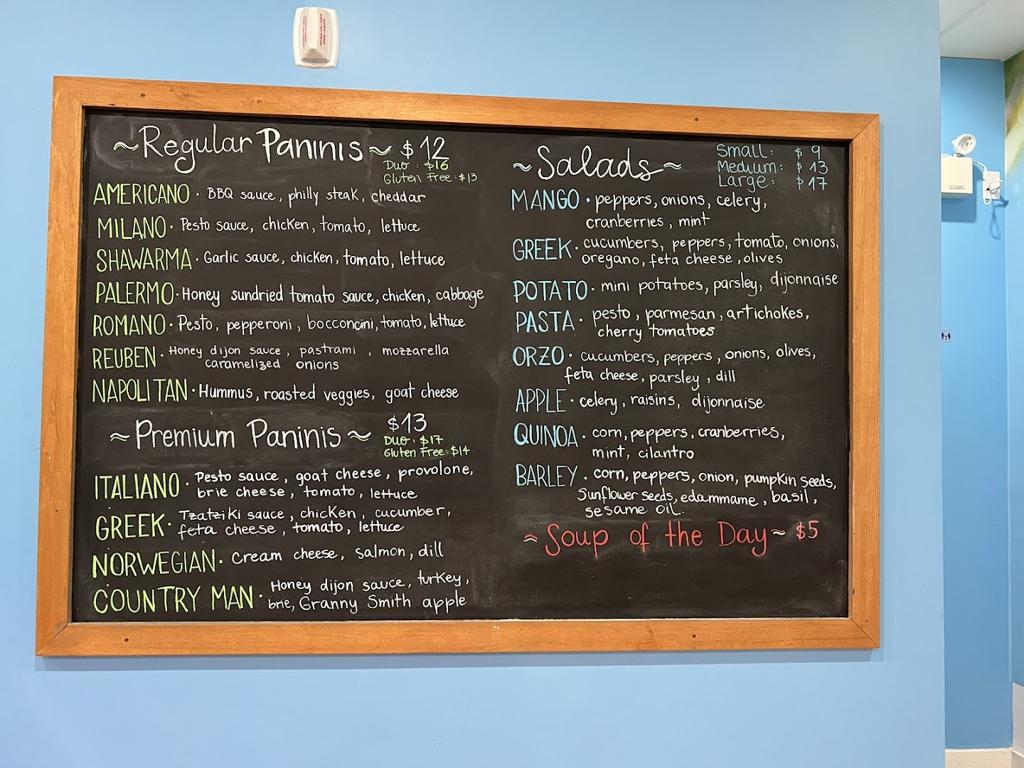 ~Regular Paninis~ $12
Duo: $16
Gluten Free: $13
AMERICANO · BBQ sauce, philly steak, cheddar
MILANO · Pesto sauce, chicken, tomato, lettuce
SHAWARMA · Garlic sauce, chicken, tomato, lettuce
PALERMO · Honey sundried tomato sauce, chicken, cabbage
ROMANO · Pesto, pepperoni, bocconcini, tomato, lettuce
REUBEN · Honey dijon sauce, pastrami, mozzarella
caramelized onions
NAPOLITAN · Hummus, roasted veggies, goat cheese
~Premium Paninis~ $13
Duo: $17
Gluten Free: $14
ITALIANO · Pesto sauce, goat cheese, provolone,
brie cheese, tomato, lettuce
GREEK · Tzatziki sauce, chicken, cucumber,
feta cheese, tomato, lettuce
NORWEGIAN · Cream cheese, salmon, dill
COUNTRY MAN · Honey dijon sauce, turkey,
brie, Granny Smith apple
~Salads~
Small: $9
Medium: $13
Large: $17
MANGO · peppers, onions, celery,
cranberries, mint
GREEK · cucumbers, peppers, tomato, onions,
oregano, feta cheese, olives
POTATO · mini potatoes, parsley, dijonnaise
PASTA · pesto, parmesan, artichokes,
cherry tomatoes
ORZO · cucumbers, peppers, onions, olives,
feta cheese, parsley, dill
APPLE · celery, raisins, dijonnaise
QUINOA · corn, peppers, cranberries,
mint, cilantro
BARLEY · corn, peppers, onion, pumpkin seeds,
Sunflower seeds, edammame, basil,
sesame oil.
~Soup of the Day~ $5